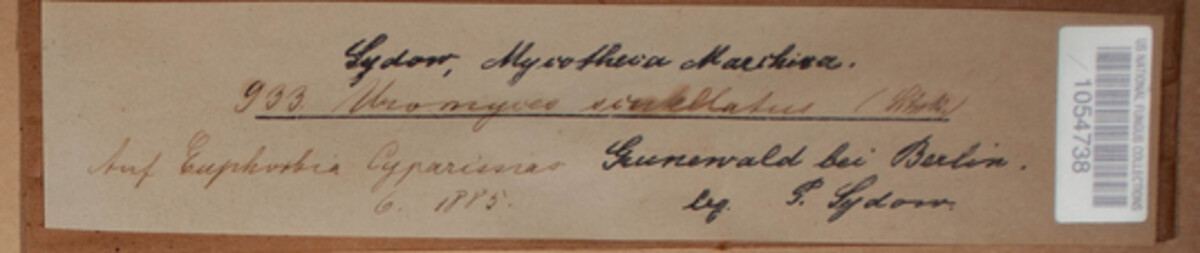 Sydow, Mycotheca Marchica.
933. Uromyces scutellatus (Schrk)
Auf Euphorbia Cyparissias Grunewald bei Berlin.
6. 1885. leg. P. Sydow.
US NATIONAL FUNGUS COLLECTIONS
1054738